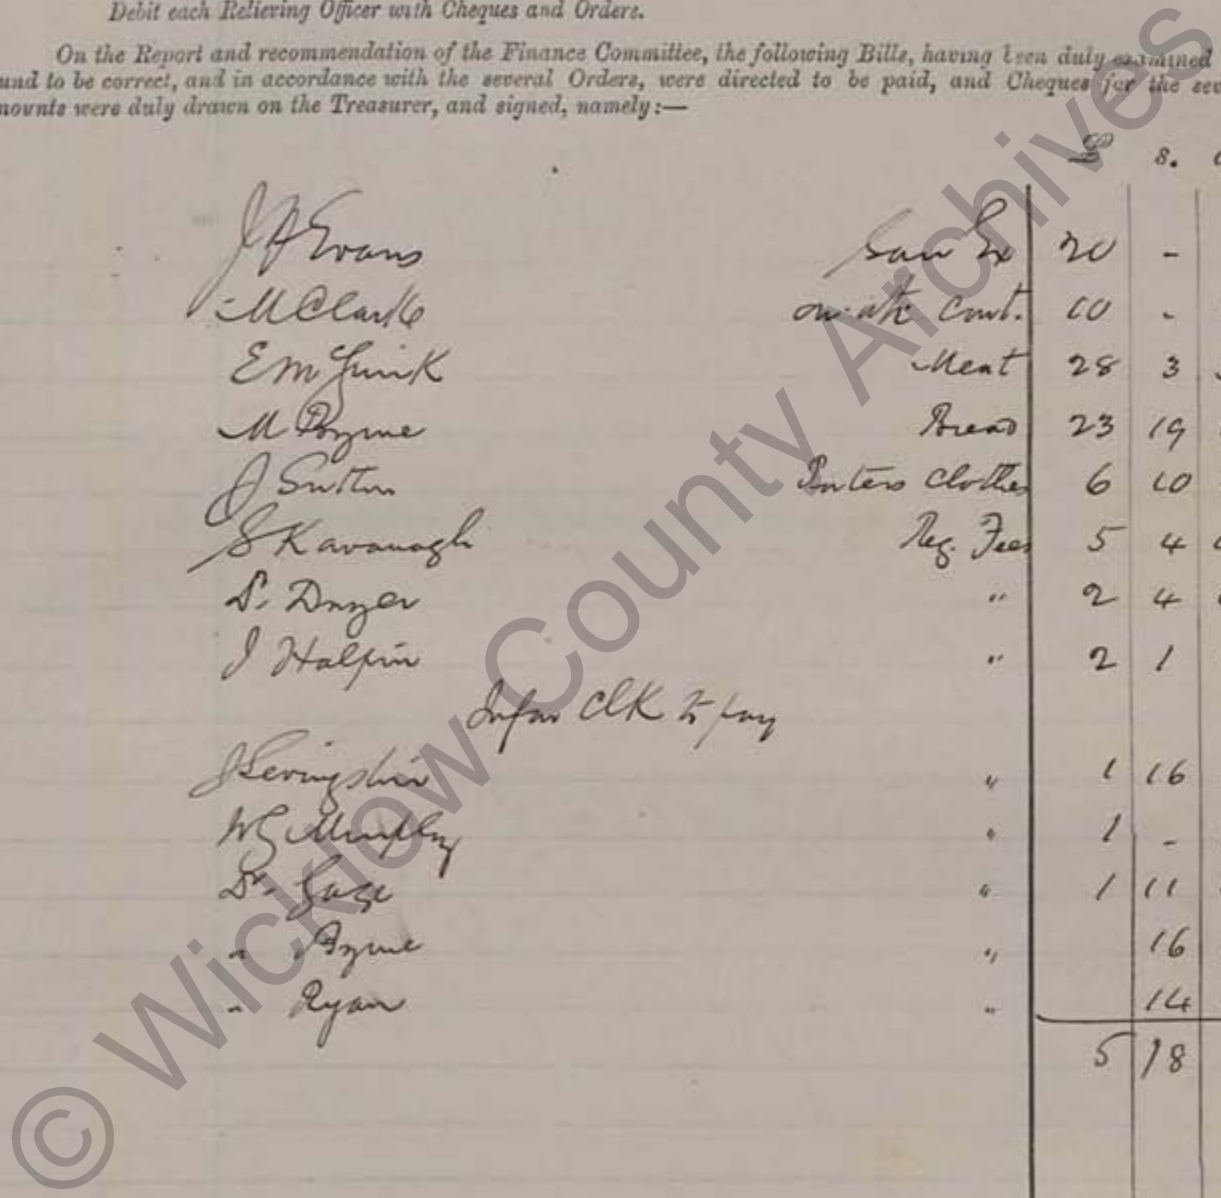 Debit each Relieving Officer with Cheques and Orders.
On the Report and recommendation of the Finance Committee, the following Bills, having been duly examined
und to be correct, and in accordance with the several Orders, were directed to be paid, and Cheques for the sev
mounts were duly drawn on the Treasurer, and signed, namely:—
£ s.
J H Evans San Ex 20 -
M Clarke on a/c Cont. 10 -
E M Meat 28 3
M Byrne Bread 23 19
J Sutton Porters Clothes 6 10
S Kavanagh Reg. Fees 5 4
P. Dwyer " 2 4
J Halpin " 2 1
Infor Clk to pay
J Levingston " 1 16
W G Murphy " 1 -
Dr. " 1 11
" Byrne " 16
" Ryan " 14
5 18
© Wicklow County Archives